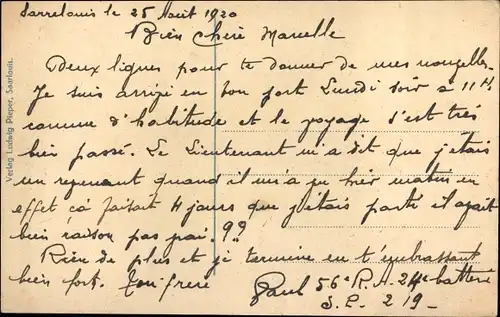 Sarrelouis le 25 Août 1920
Bien Chère Marcelle
Deux lignes pour te donner de mes nouvelles.
Je suis arrivé en bon port Lundi soir à 11H
comme d'habitude et le voyage s'est très
bien passé. Le Lieutenant m'a dit que j'étais
un revenant quand il m'a vu hier matin en
effet ca faisait 4 jours que j'étais parti il avait
bien raison pas vrai. ??
Rien de plus et je termine en t'embrassant
bien fort. Ton frère
Paul 56e R.A. 24e batterie
S.P. 219-
Verlag Ludwig Pieper, Saarlouis.